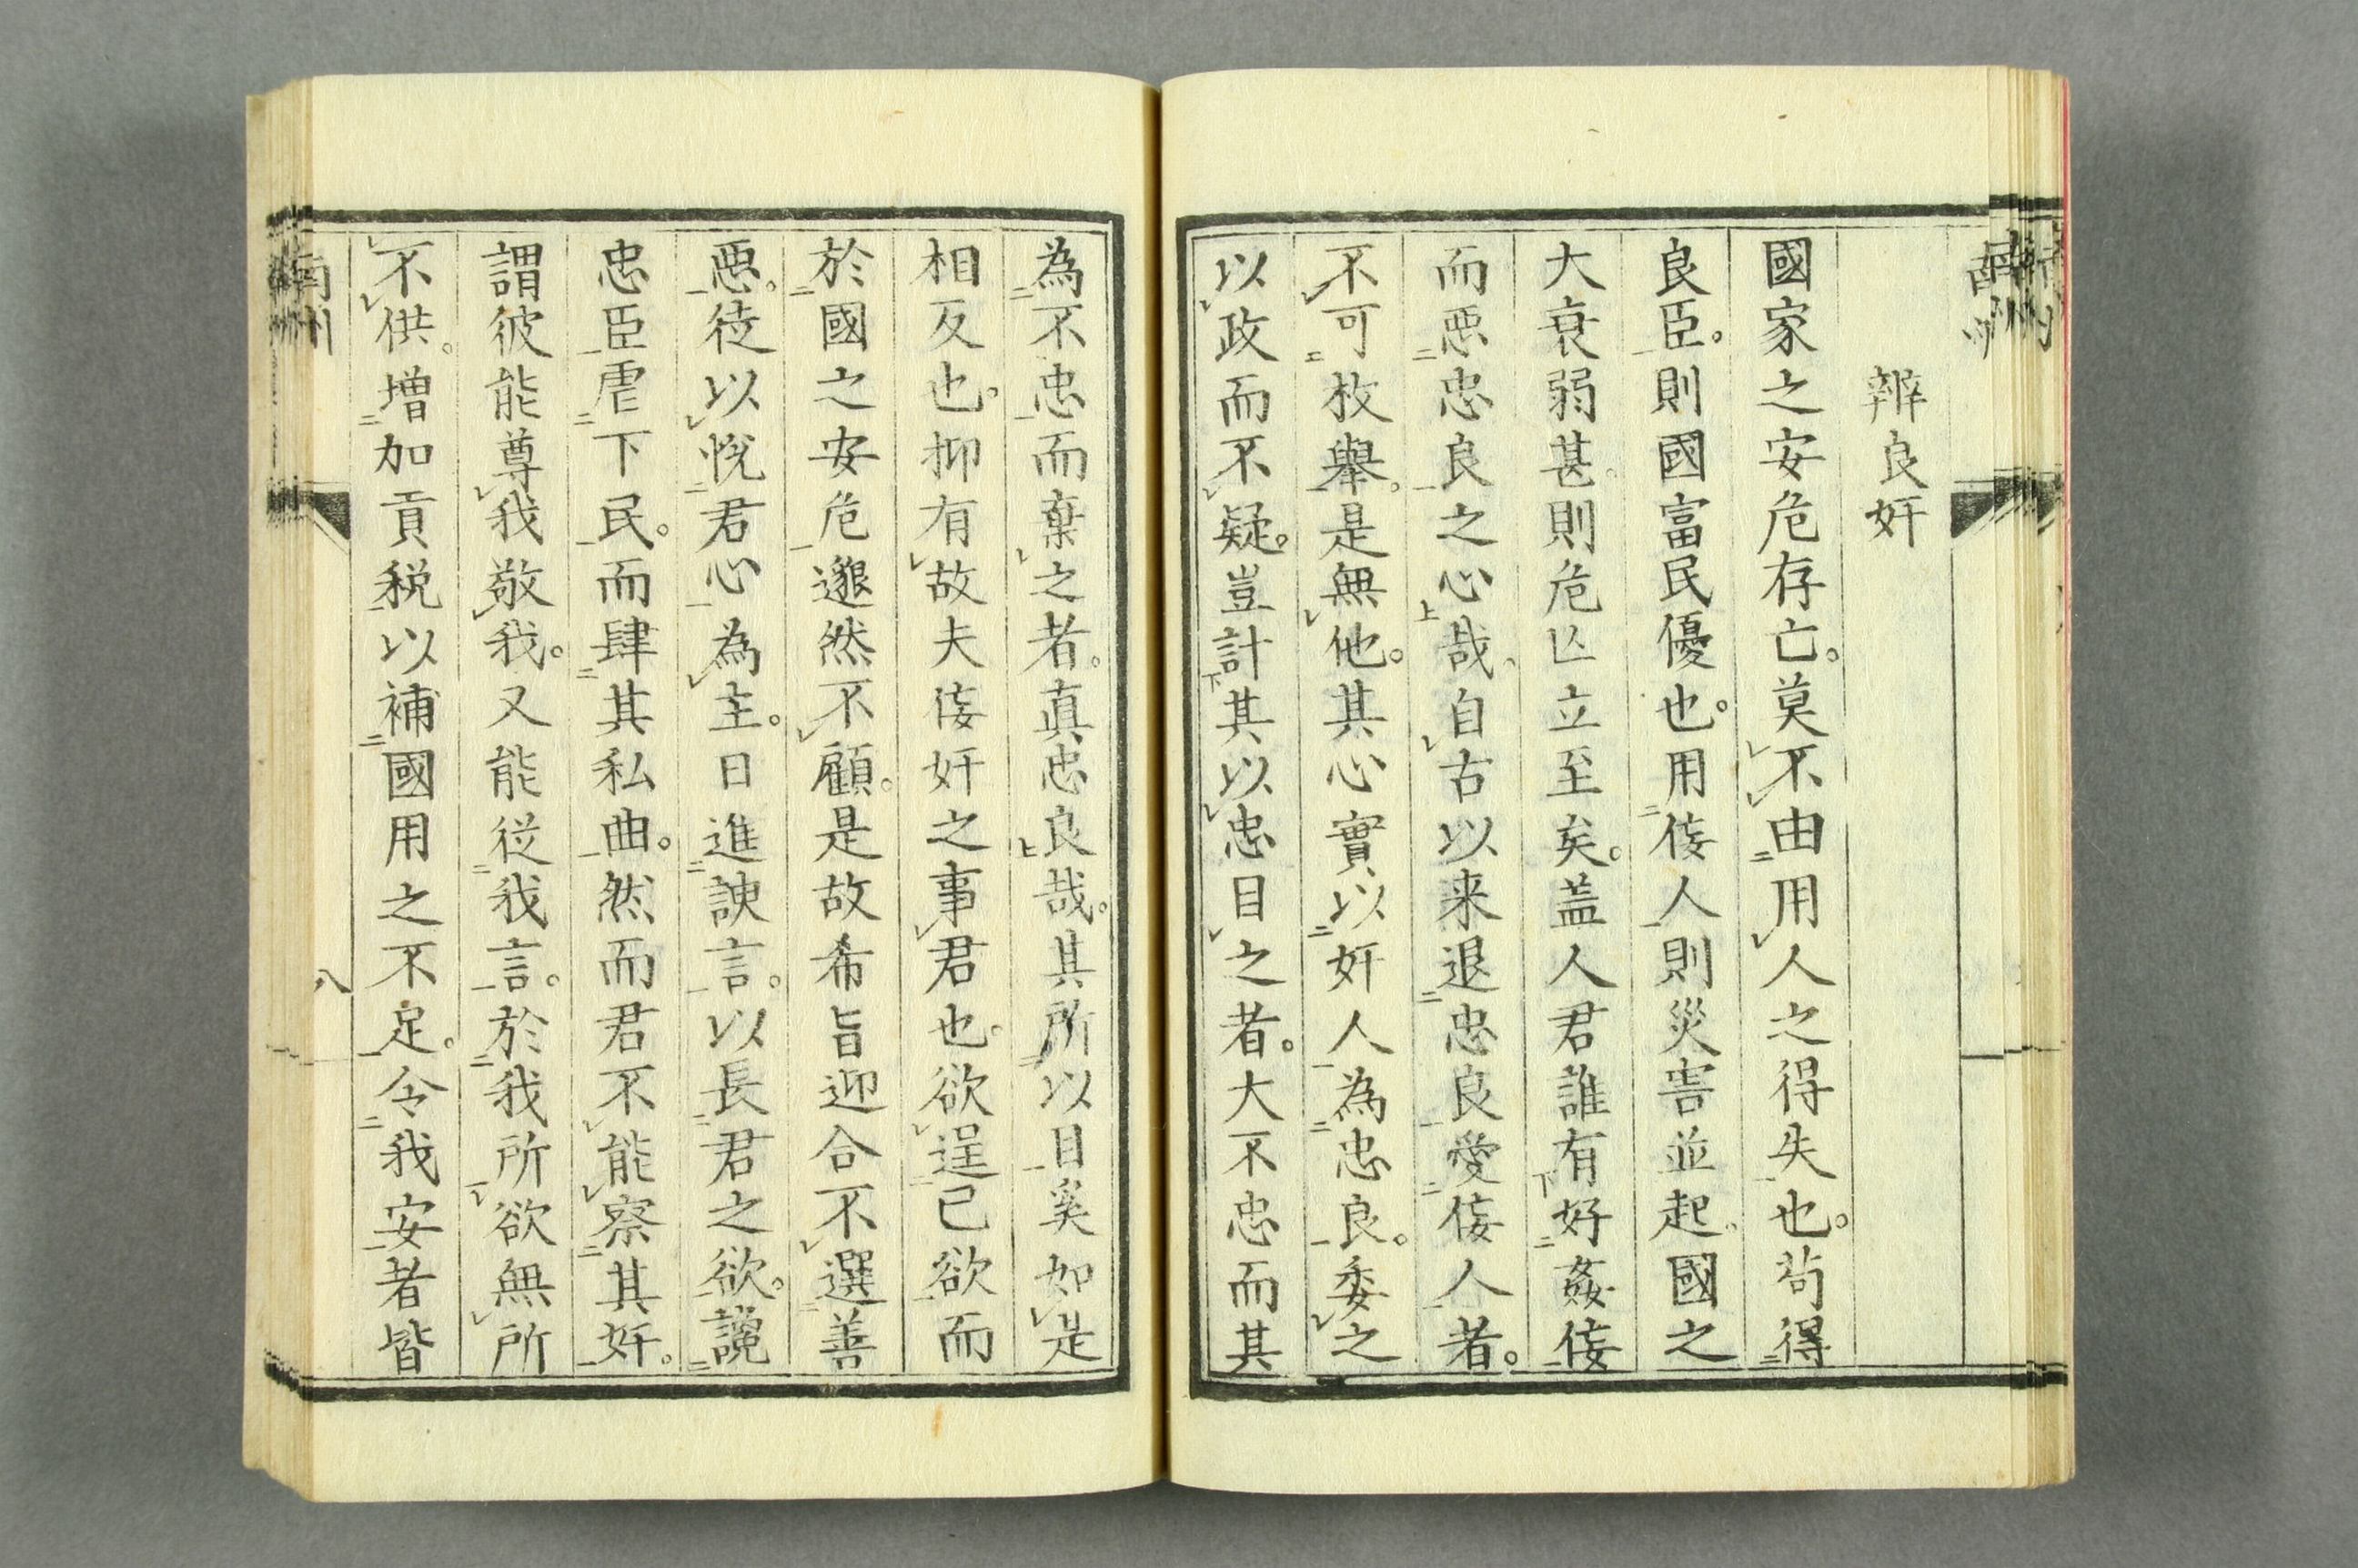 辨良奸
國家之安危存亡。莫不由用人之得失也。苟得
良臣。則國富民優也。用侫人則災害並起。國之
大衰弱甚。則危亾立至矣。盖人君誰有好姦侫
而悪忠良之心哉。自古以来退忠良愛侫人者。
不可枚舉。是無他。其心實以奸人為忠良。委之
以政而不疑。豈計其以忠目之者。大不忠而其
為不忠而棄之者。真忠良哉。其所以目奚如是
相反也。抑有故夫侫奸之事君也。欲逞己欲而
於國之安危邈然不顧。是故希旨迎合不選善
悪。徒以悦君心為主。日進諛言。以長君之欲。讒
忠臣虐下民。而肆其私曲。然而君不能察其奸。
謂彼能尊我敬我。又能従我言。於我所欲無所
不供。増加貢税以補國用之不足。令我安者皆
南州
八